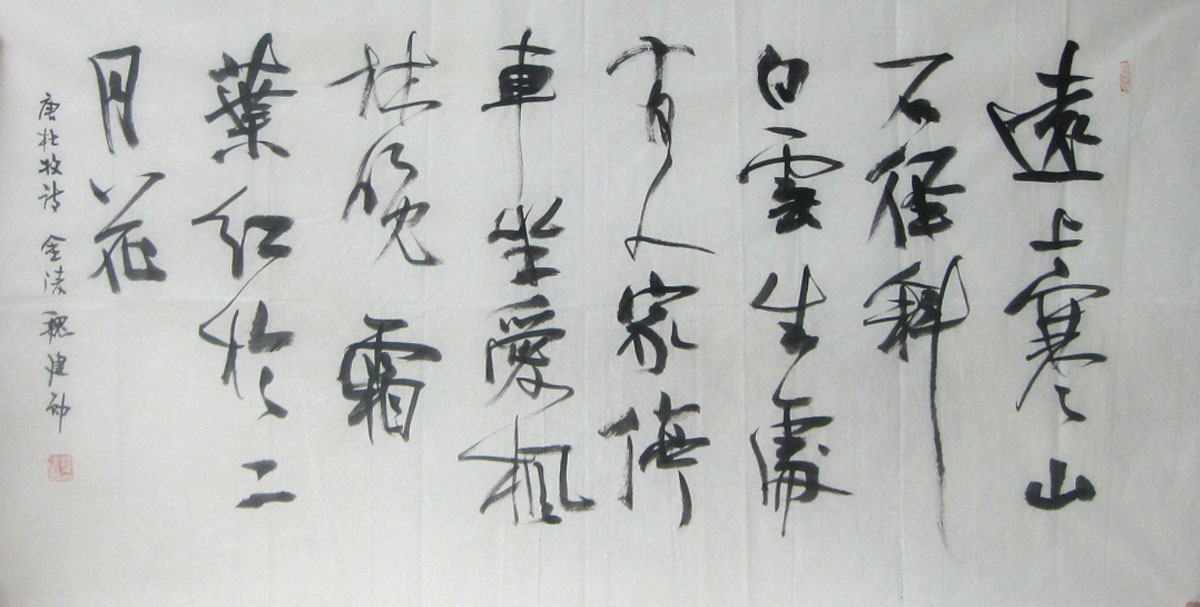 遠上寒山
石徑斜
白雲生處
有人家停
車坐愛楓
林晚霜
葉紅於二
月花
唐杜牧诗 金陵 魏建